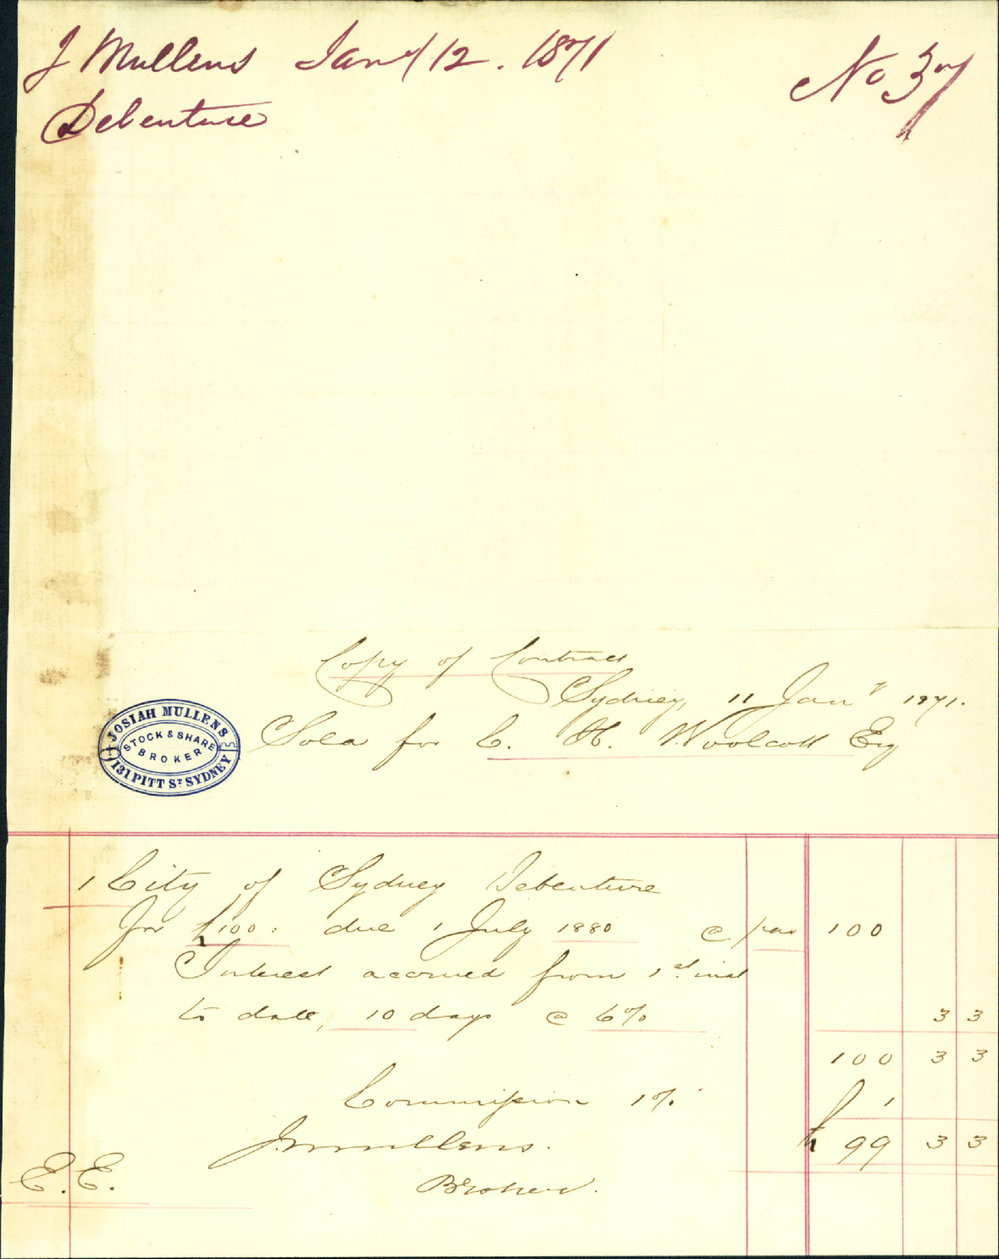 J Mullens Jany 12. 1871
No 37
Debenture
Copy of Contract
Sydney 11 Jany 1871.
JOSIAH MULLENS
STOCK & SHARE
BROKER
131 PITT ST SYDNEY
Sold for C. H. Woolcott Esq
1 City of Sydney Debenture
For £100: due 1 July 1880 @ par 100
Interest accrued from 1st inst
to date, 10 days @ 6% 3 3
100 3 3
Commission 1% 1
J Mullens. £ 99 3 3
E.E.
Broker.